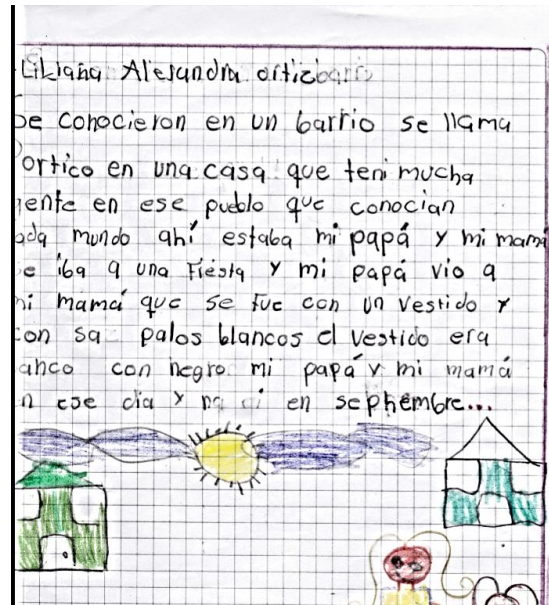 Liliana Alejandra ortizbarri
Se conocieron en un barrio se llama
ortico en una casa que teni mucha
gente en ese pueblo que conocian
ada mundo ahí estaba mi papá y mi mamá
e iba a una Fiesta y mi papá vio a
mi mamá que se fue con un vestido y
con sa palos blancos el vestido era
anco con negro mi papá y mi mamá
n ese dia y na ci en sephembre...